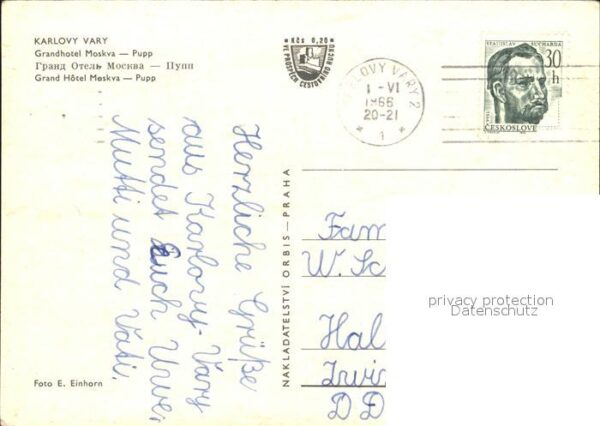 KARLOVY VARY
Grandhotel Moskva — Pupp
Гранд Отель Москва — Пупп
Grand Hôtel Moskva — Pupp
Kčs 0,20
VE PROSPĚCH CESTOVNÍHO RUCHU
KARLOVY VARY 2
1 -VI
1966
20-21
STANISLAV SUCHARDA
30
h
ČESKOSLOVE
Herzliche Grüße
aus Karlovy-Vary
sendet Euch
Mutti und Vati.
NAKLADATELSTVÍ ORBIS — PRAHA
Fam
W. Sc
Hal
Irwi
DD
privacy protection
Datenschutz
Foto E. Einhorn